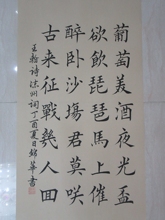 葡萄美酒夜光盃
欲飲琵琶馬上催
醉卧沙塲君莫咲
古来征戰幾人回
王翰诗涼州词丁酉夏日錦華書